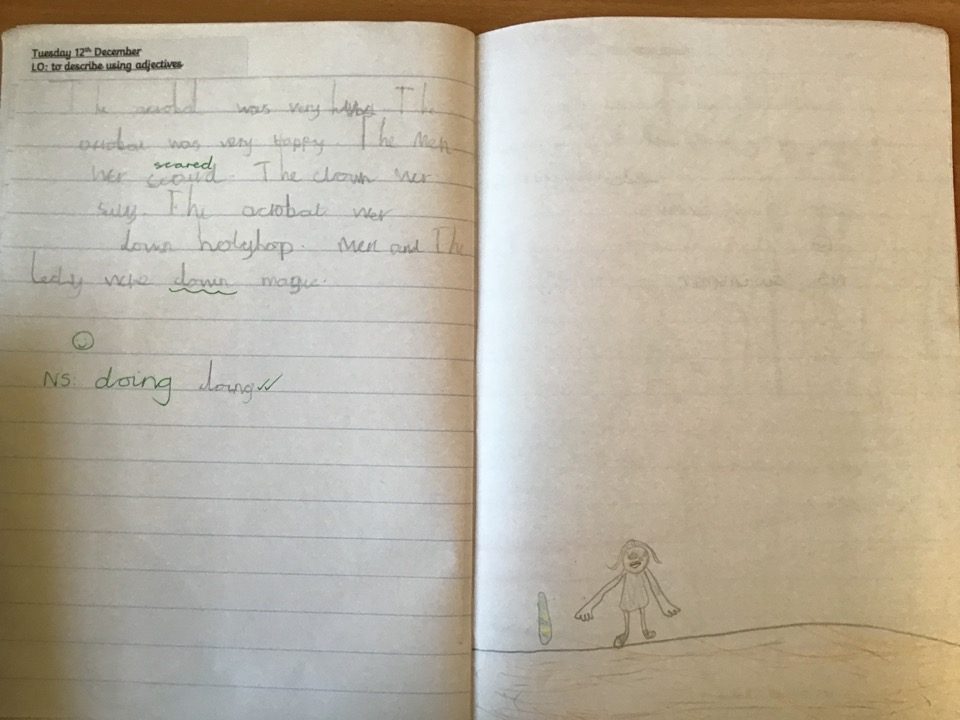 Tuesday 12th December
LO: to describe using adjectives
The acrobat was very happy. The
acrobat was very happy. The Men
wer scared
scaud. The clown wer
silly. The acrobat wer
down holyhop. Men and The
Ledy were down magic.
NS: doing doing